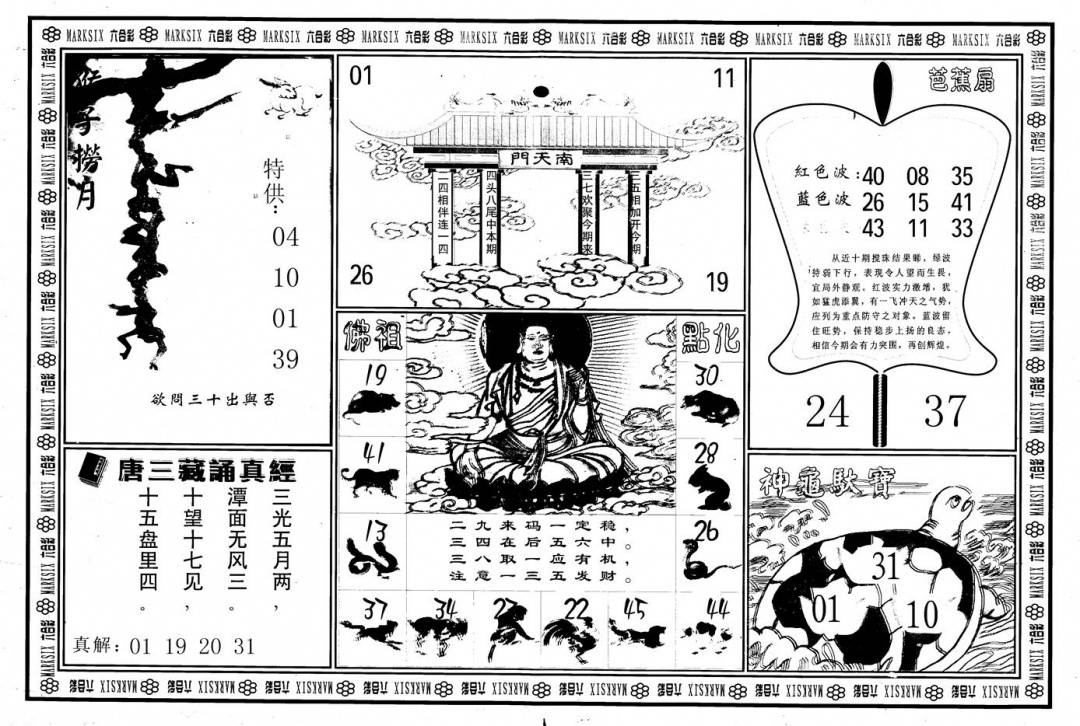 MARKSIX 六合彩 MARKSIX 六合彩 MARKSIX 六合彩 MARKSIX 六合彩 MARKSIX 六合彩 MARKSIX 六合彩 MARKSIX 六合彩 MARKSIX 六合彩 MARKSIX 六合彩 MARKSIX 六合彩
猴子撈月
特供:
04
10
01
39
欲問三十出與否
唐三藏誦真經
三光五月两,
潭面无风三。
十望十七见,
十五盘里四。
真解: 01 19 20 31
01
11
南天門
三五相加开今期
三七欢聚今期来
四头八尾中本期
二四相伴连一四
26
19
佛祖
點化
19
30
41
28
13
26
二九来码一定稳,
三四在后五六中。
三八取一应有机,
注意一三五发财。
37 34 22 45 44
芭蕉扇
紅色波: 40 08 35
藍色波 26 15 41
43 11 33
从近十期搅珠结果睇,绿波
特弱下行,表现令人望而生畏,
宜局外静观。红波实力激增,犹
如猛虎添翼,有一飞冲天之气势,
应列为重点防守之对象。蓝波留
住旺势,保持稳步上扬的良态,
相信今期会有力突围,再创辉煌。
24
37
神龜馱寶
31
01
10